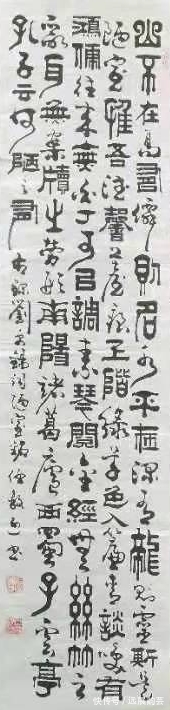 山不在高有仙則名水不在深有龍則靈斯是
陋室惟吾德馨苔痕上階綠草色入簾青談笑有
鴻儒往來無白丁可以調素琴閱金經無絲竹之
亂耳無案牘之勞形南陽諸葛廬西蜀子雲亭
孔子云何陋之有 劉禹錫詞陋室銘 書
快传号